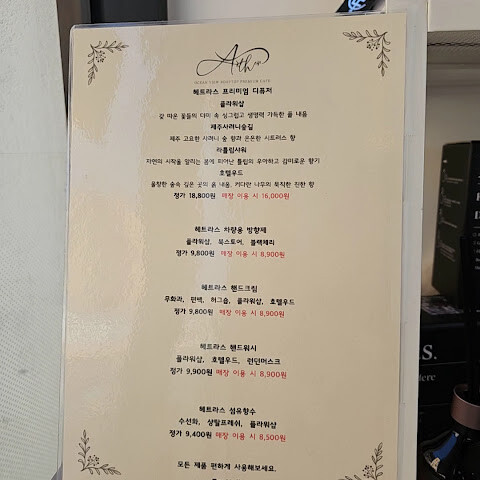 헤트라스 프리미엄 디퓨저
플라워샵
갖 따온 꽃들의 다미 속 싱그럽고 생명력 가득한 꽃 내음
제주사려니숲길
제주 고요한 사려니 숲 향과 은은한 시트러스 향
라튤립샤워
자연의 시작을 알리는 봄에 피어난 튤립의 우아하고 감미로운 향기
호텔우드
울창한 숲속 깊은 곳의 흙 내음, 커다란 나무의 묵직한 진한 향
정가 18,800원 매장 이용 시 16,000원
헤트라스 차량용 방향제
플라워샵, 북스토어, 블랙체리
정가 9,800원 매장 이용 시 8,900원
헤트라스 핸드크림
무화과, 런백, 허그솝, 플라워샵, 호텔우드
정가 9,800원 매장 이용 시 8,900원
헤트라스 핸드워시
플라워샵, 호텔우드, 런던머스크
정가 9,900원 매장 이용 시 8,900원
헤트라스 섬유향수
수선화, 상탈프레쉬, 플라워샵
정가 9,400원 매장 이용 시 8,500원
모든 제품 편하게 사용해보세요.